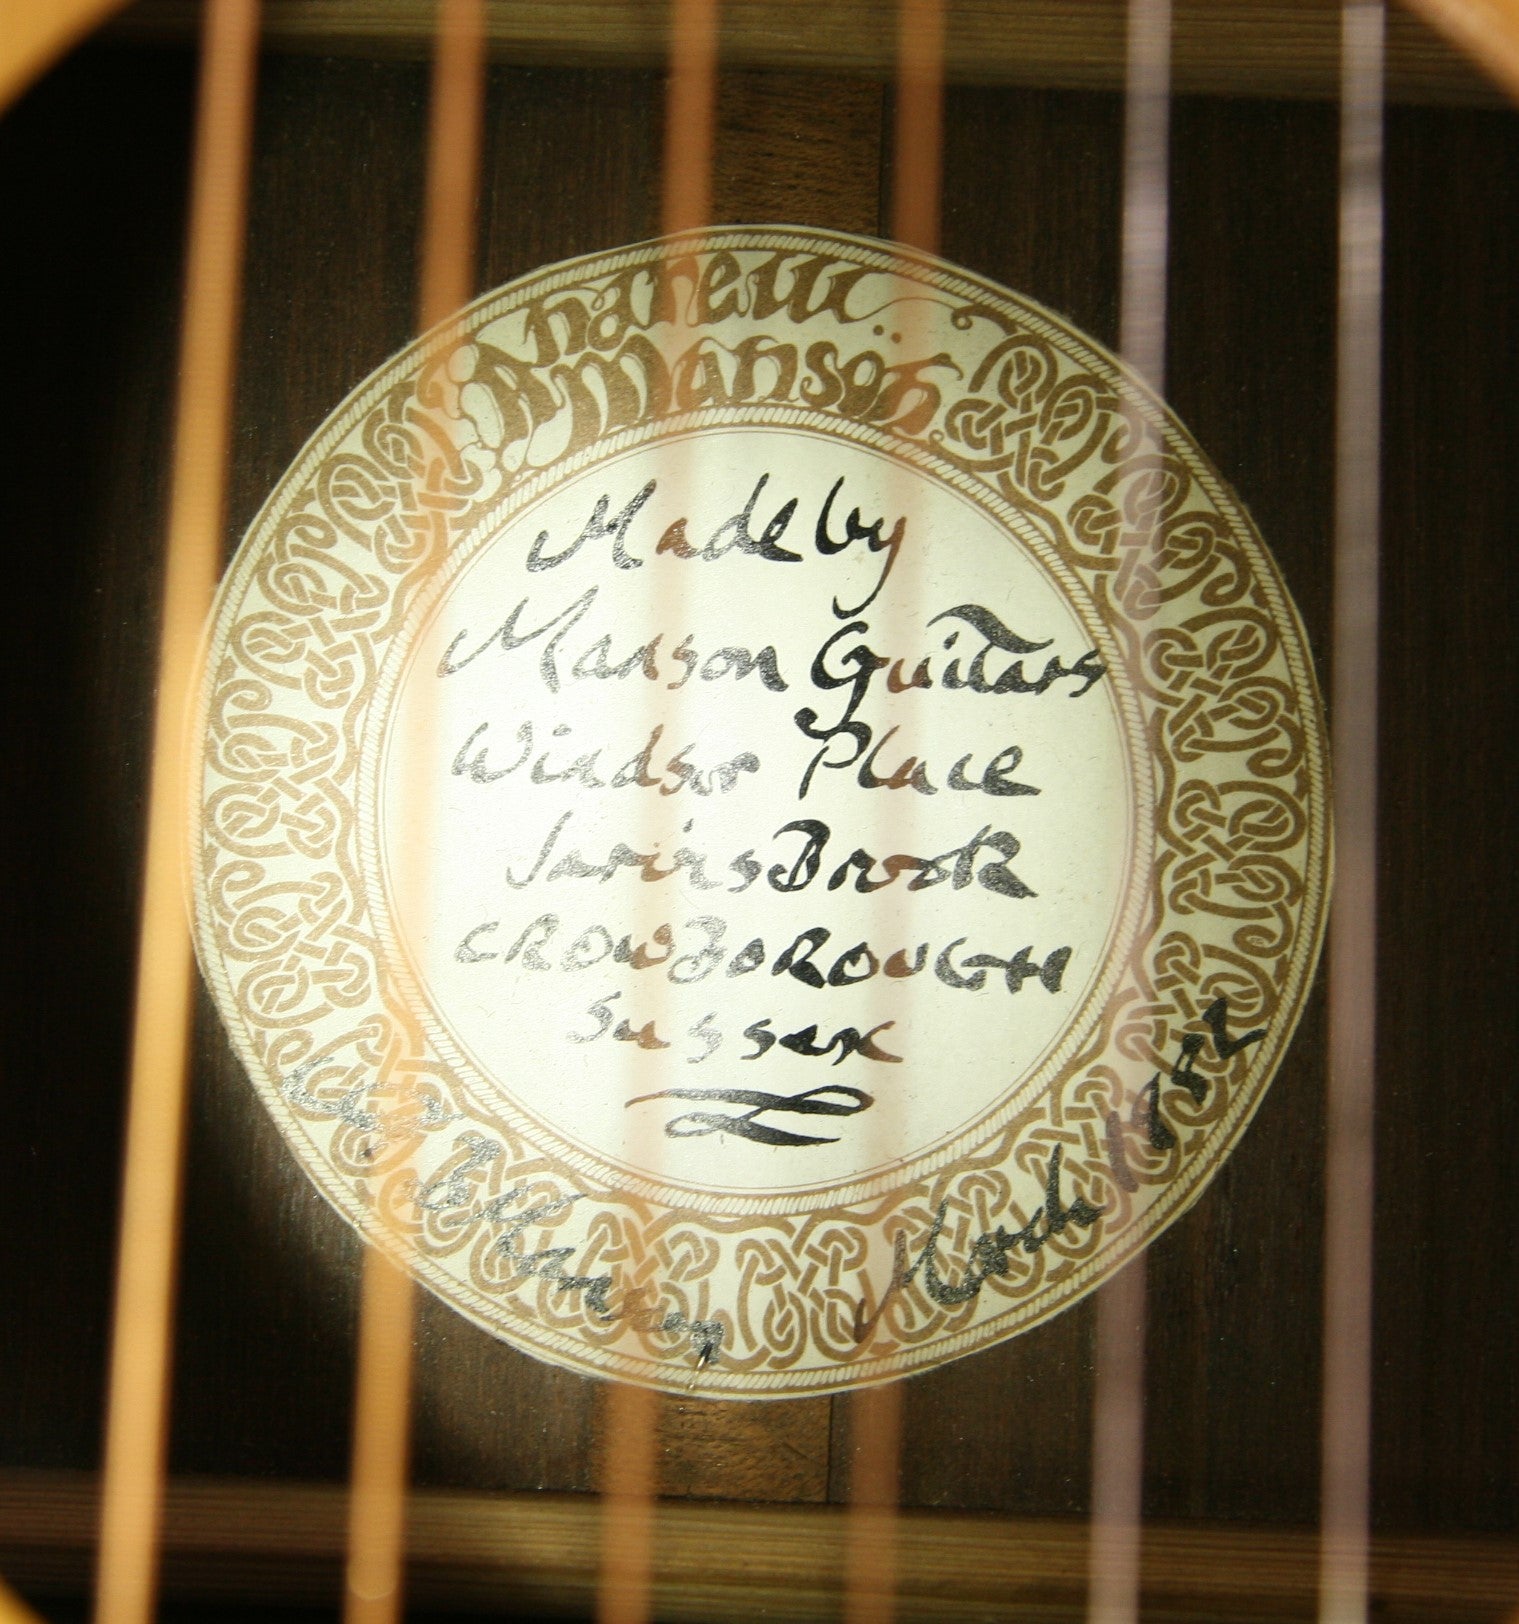 Andrew
Manson
Made by
Manson Guitars
Windsor Place
Jarvis Brook
CROWBOROUGH
Sussex
March 1982